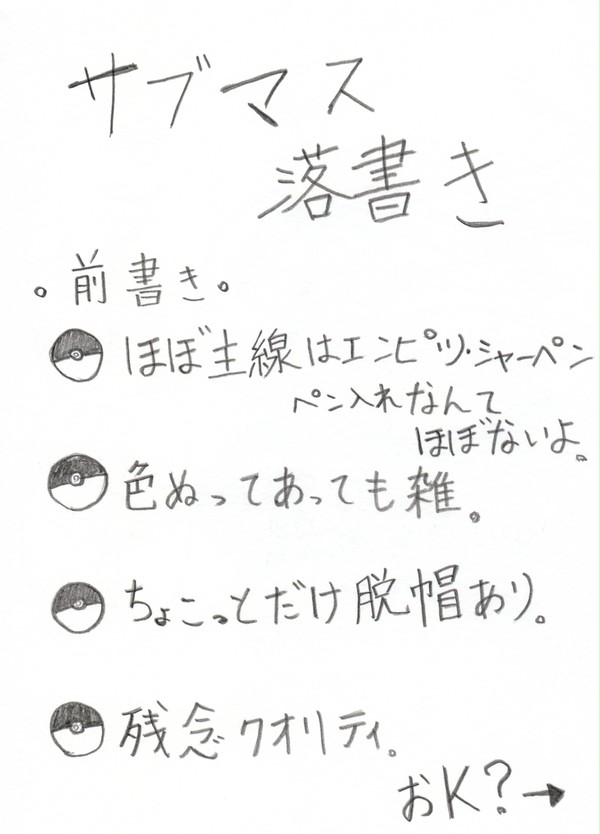 サブマス
落書き
。前書き。
ほぼ主線はエンピツ・シャーペン
ペン入れなんて
ほぼないよ。
色ぬってあっても雑。
ちょこっとだけ脱帽あり。
残念クオリティ。
おK?→